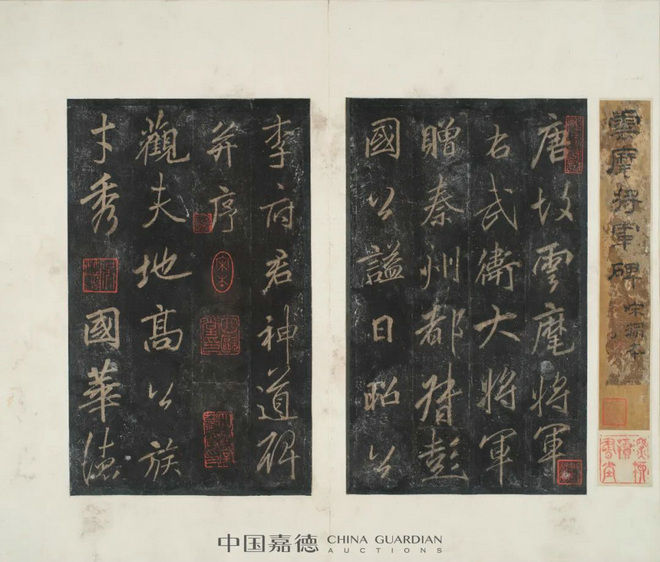 雲麾將軍碑
唐故雲麾將軍
右武衛大將軍
贈秦州都督彭
國公謚曰昭公
李府君神道碑
并序
觀夫地高公族
才秀國華德
中国嘉德 CHINA GUARDIAN
AUCTIONS